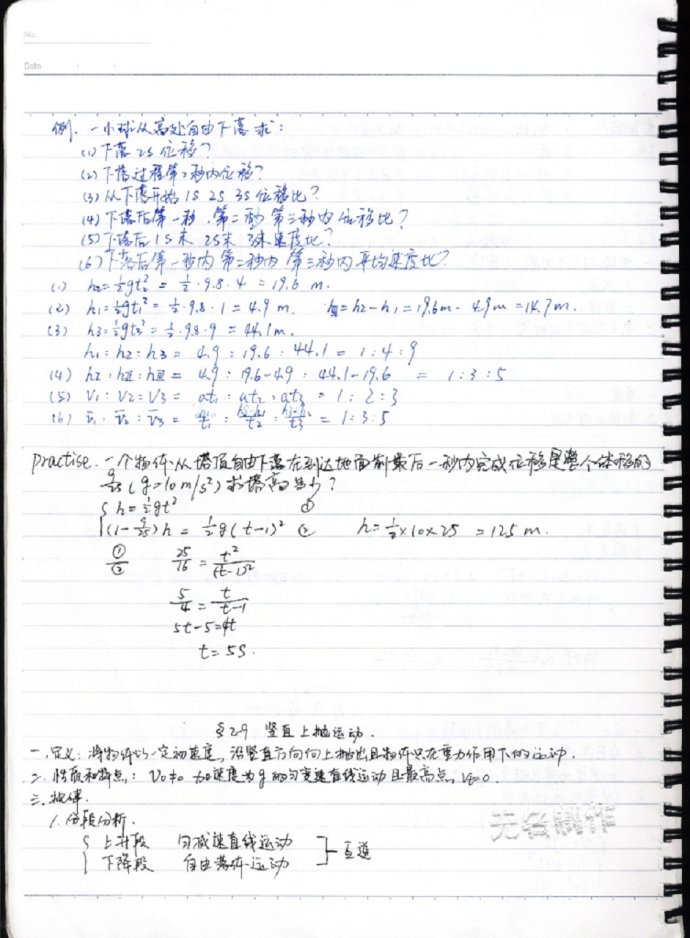 No.
Date
例. 一小球从高处自由下落求:
(1) 下落 2S 位移?
(2) 下落过程第2秒内位移?
(3) 从下落开始 1S 2S 3S 位移比?
(4) 下落后第一秒. 第二秒 第三秒内 位移比?
(5) 下落后 1S末 2S末 3S末速度比?
(6) 下落后第一秒内 第二秒内 第三秒内 平均速度比?
(1) h₂=½gt₂² = ½·9.8·4 = 19.6 m.
(2) h₁=½gt₁² = ½·9.8·1 = 4.9 m. hⅡ=h₂-h₁=19.6m-4.9m=14.7m.
(3) h₃=½gt₃² = ½·9.8·9 = 44.1m.
h₁:h₂:h₃ = 4.9:19.6:44.1 = 1:4:9
(4) hⅠ:hⅡ:hⅢ = 4.9:19.6-4.9:44.1-19.6 = 1:3:5
(5) V₁:V₂=V₃ = at₁:at₂:at₃ = 1:2:3
(6) v̄₁:v̄₂:v̄₃ = = 1:3:5
Practise. 一个物体从塔顶自由下落在到达地面前最后一秒内完成位移是整个位移的
9/25 (g=10m/s²) 求塔高多少?
{ h=½gt² ①
(1-9/25)h = ½g(t-1)² ② h=½×10×25 =125 m.
①/② 25/16 = t²/(t-1)²
5/4 = t/t-1
5t-5=4t
t=5S.
§2-9 竖直上抛运动.
一. 定义: 将物体以一定初速度, 沿竖直方向向上抛出且物体只在重力作用下的运动.
二. 性质和特点: V₀≠0 加速度为g的匀变速直线运动且最高点 Vt=0
三. 规律.
1. 分段分析.
{ 上升段 匀减速直线运动
下降段 自由落体运动 ] 互逆
无名制作